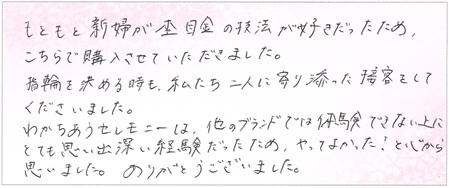 もともと新婦が杢目金の技法が好きだったため、
こちらで購入させていただきました。
指輪を決める時も、私たち二人に寄り添った接客をして
くださいました。
わかちあうセレモニーは、他のブランドでは体験できない上に
とても思い出深い経験だったため、やってよかった！と心から
思いました。ありがとうございました。